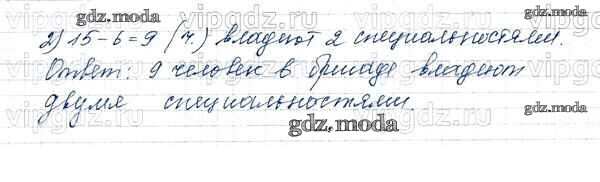 gdz.moda gdz.moda
2) 15-6=9 (ч.) владеют 2 специальностями.
Ответ: 9 человек в бригаде владеют
двумя специальностями.
gdz.moda
gdz.moda